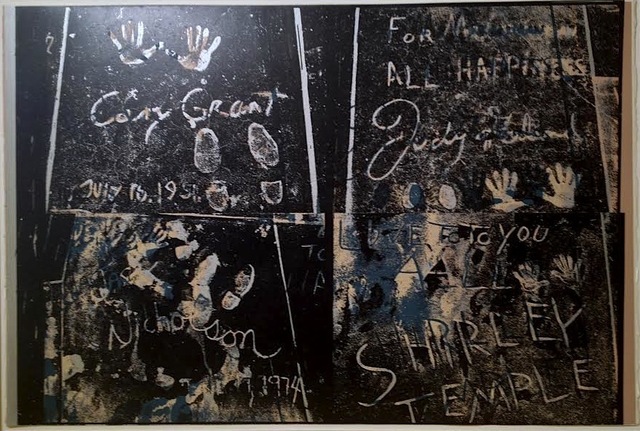 Cary Grant
JULY 16.1951
FOR
ALL HAPPINESS
Judy Garland
Nicholson
1974
LOVE TO YOU
ALL
SHIRLEY
TEMPLE